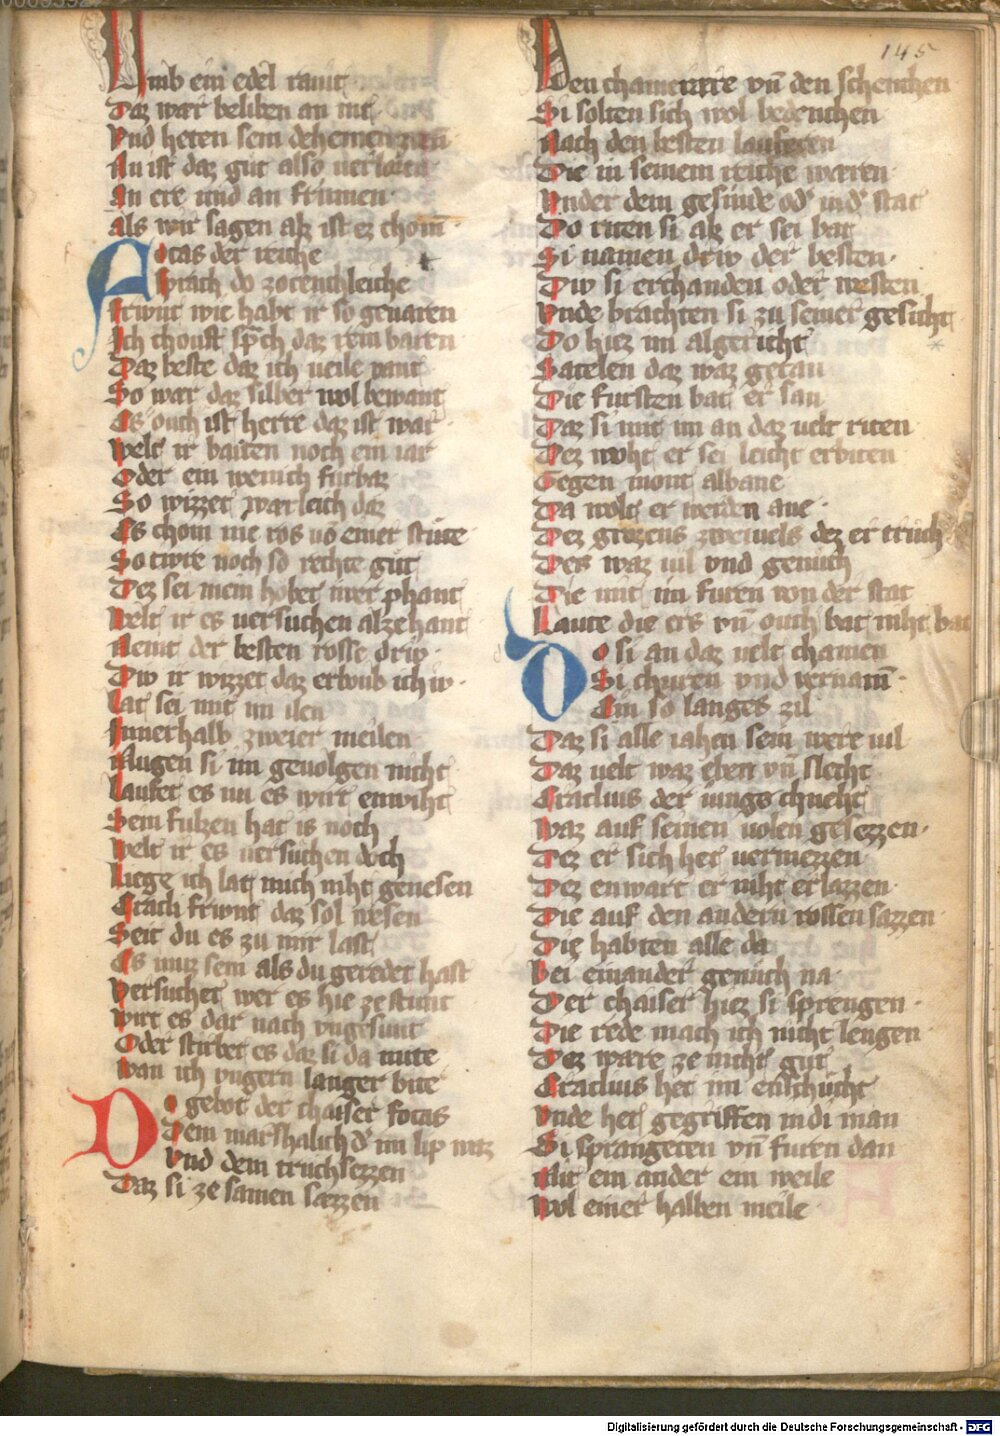 145
Umb ein edel ravit
Daz war beliben an nit
Vnd heten sein dehemen
Nu ist daz gut also verlorn
An ere und an frumen
Als wir sagen alz ist ez chom̄
Focas der reiche
Sprach do zorenchleiche
Friwnt wie habt ir so gevaren
Ich choust sp̄ch daz rein baren
Daz beste daz ich veile vant
So war daz silber wol bewant
Es ouch ist herre daz ist war
Welt ir baiten noch ein iar
Oder ein wenich furbaz
So wizzet warleich daz
Es chom nie ros vō einer stute
So tiwre noch so rechte gut
Dez sei mein hobet iwer phant
Welt ir es versuchen alzehant
Nemt der besten rosse driv
Div ir wizzet daz erloub ich iv
Lat sei mit im ilen
Innerhalb zweier meilen
Mugen si im gevolgen nicht
Laufet es nu es wirt enwiht
Sem fulzen hat is noch
Welt ir es versuchen doch
Liege ich lat mich niht genesen
Erach friwnt daz sol wesen
Seit du es zu mir last
Es muz sein als du geredet hast
Versuchet wer es hie zestunt
Wirt es dar nach vngesunt
Oder stirbet es daz si da mite
Wan ich vngern langer bite
Do gebot der chaiser focas
Dem marshalich d' im lip waz
Vnd dem truchsezzen
Daz si ze samen sazzen
Den chamerære vn̄ den schenchen
Si solten sich wol bedenchen
Nach den besten lauferen
Die in seinem reiche weren
Vnder dem gesinde od' in d' stat
Do riten si alz er sei bat
Si namen driv der besten
Div si erchanden oder westen
Vnde brachten si zu seiner gesicht
Do hiez im algericht
Satelen daz waz getan
Die fursten bat er san
Daz si mit im an daz velt riten
Dez moht er sei leicht erbiten
Gegen mont albane
Da wolt er werden ane
Dez grozens zweivels dez er truch
Der waz vil vnd genuch
Die mit im furen von der stat
Laute die ers vn̄ ouch bat niht bat
Do si an daz velt chamen
Si churen vnd vernam̄
Ein so langes zil
Daz si alle iahen sein were vil
Daz velt waz eben vn̄ slecht
Eraclius der iunge chnecht
Waz auf seinen volen gesezzen
Dez er sich het vermezzen
Dez enwart er niht erlazzen
Die auf den andern rossen sazzen
Die habten alle da
Bei einander genuch na
Der chaiser hiez si sprengen
Die rede mach ich nicht lengen
Dez ware ze nicht gut
Eraclius het im enschucht
Vnde het gegriffen in di man
Si sprangeten vn̄ furen dan
Mit ein ander ein weile
Wol einer halben meile
Digitalisierung gefördert durch die Deutsche Forschungsgemeinschaft - DFG